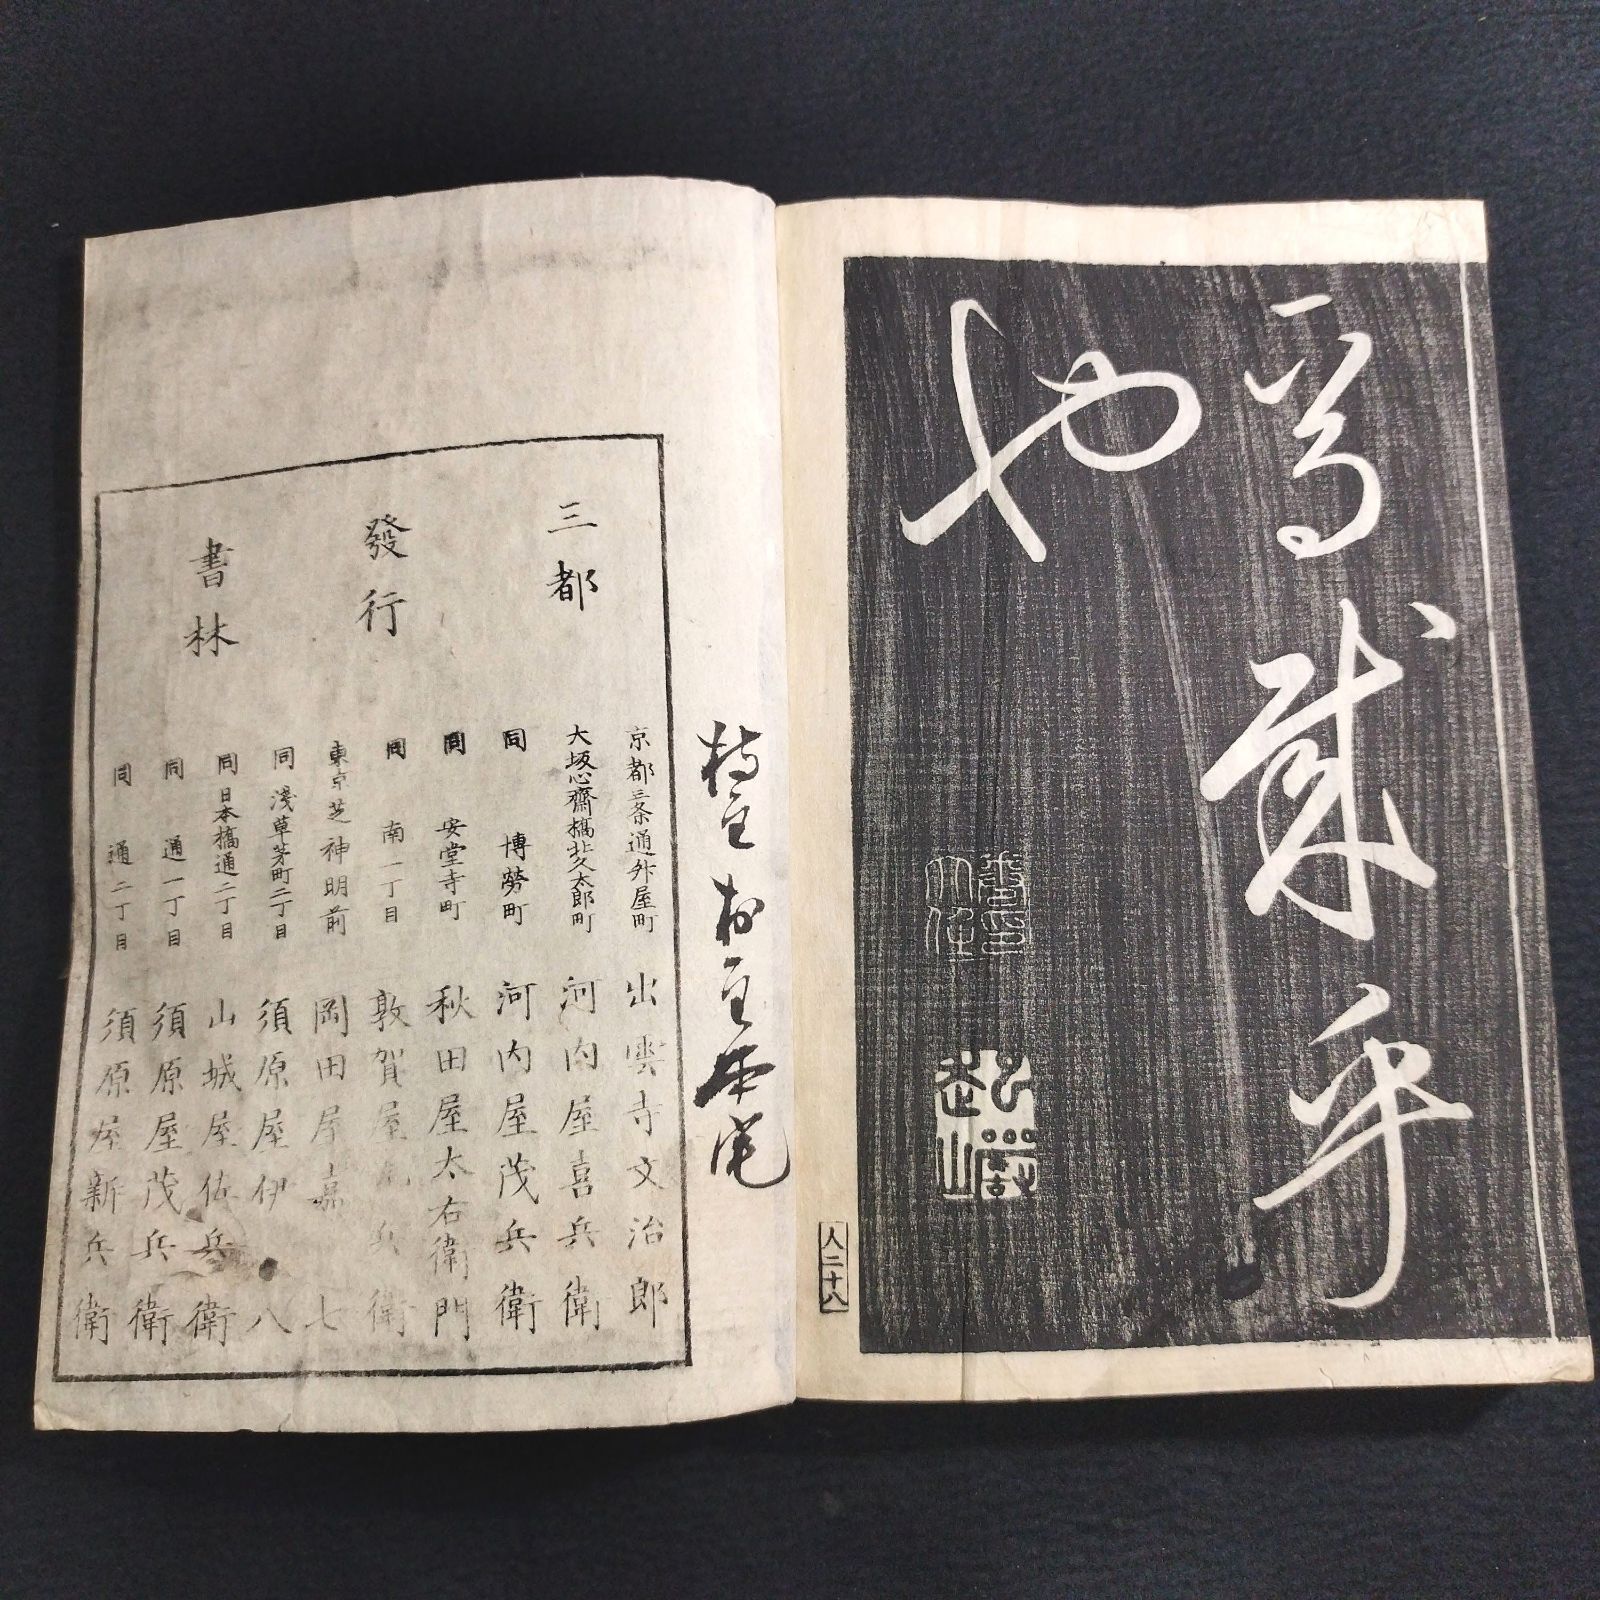 焉哉乎
也
人二十八
三都
發行
書林
京都三条通舛屋町 出雲寺文治郎
大坂心齋橋北久太郎町 河内屋喜兵衛
同 博勞町 河内屋茂兵衛
同 安堂寺町 秋田屋太右衛門
同 南一丁目 敦賀屋 兵衛
東京芝神明前 岡田屋嘉七
同 淺草茅町二丁目 須原屋伊八
同 日本橋通二丁目 山城屋佐兵衛
同 通一丁目 須原屋茂兵衛
同 通二丁目 須原屋新兵衛